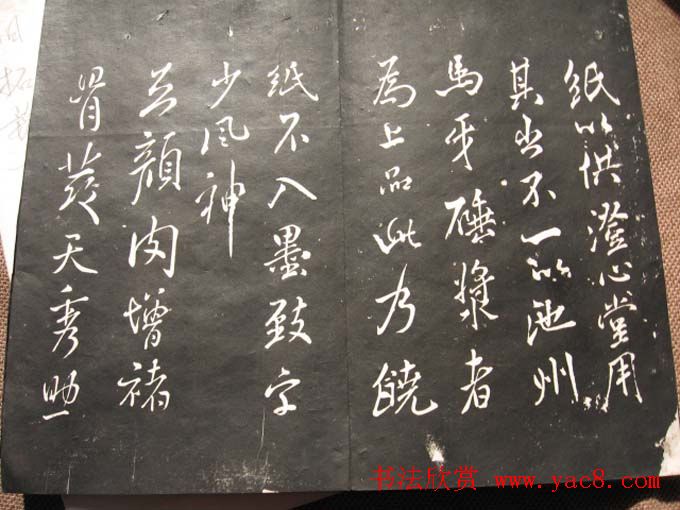 紙以供澄心堂用
其出不一以池州
馬牙硾漿者
爲上品此乃饒
紙不入墨致字
少風神
顏肉增褚
骨蔡天秀
书法欣赏 www.yac8.com